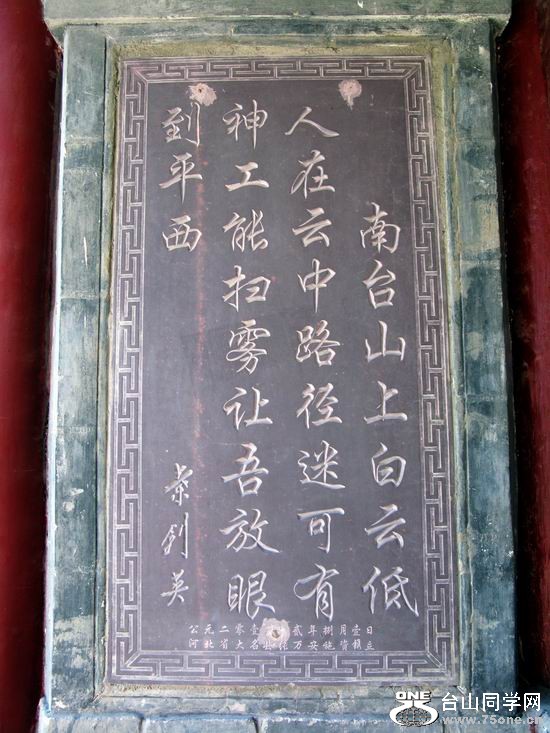 南台山上白云低
人在云中路径迷可有
神工能扫雾让吾放眼
到平西
剑英
公元二零壹贰年捌月壹日
河北省大名县万安施资立
ONE
台山同学网
www.75one.cn